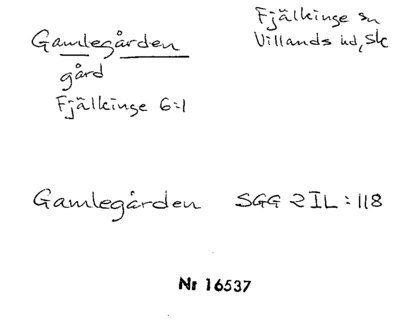 Gamlegården
gård
Fjälkinge 6:1
Fjälkinge sn
Villands hd, Sk
Gamlegården SGG 2 IL:118
Nr 16537